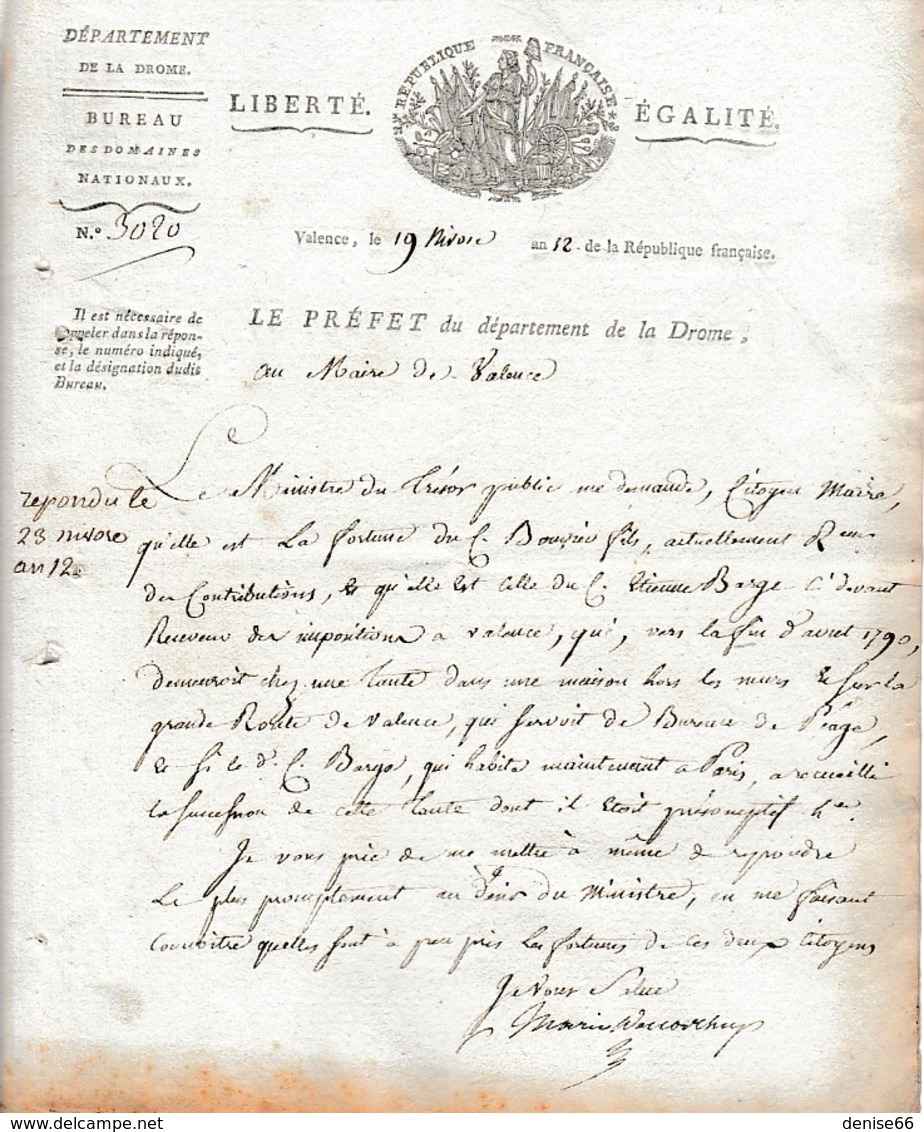 DÉPARTEMENT
DE LA DROME.
BUREAU
DES DOMAINES
NATIONAUX.
N.º 3020
RÉPUBLIQUE FRANÇAISE
LIBERTÉ. ÉGALITÉ.
Valence, le 19 Nivose an 12 de la République française.
Il est nécessaire de
rappeler dans la répon-
se, le numéro indiqué,
et la désignation dudit
Bureau.
LE PRÉFET du département de la Drome,
au Maire de Valence
repondu le
23 nivose
an 12.
Le Ministre du Trésor public me demande, Citoyen Maire,
qu'elle est La fortune du C. Bouvier fils, actuellement Rceur
des Contributions, et qu'elle est celle du C. Etienne Barge Ci devant
Receveur des impositions a valence, qui, vers la fin d'avril 1790,
demeuroit chez une tante dans une maison hors les murs et sur la
grande Route de valence, qui servoit de Bureau de Péage,
et si le dt C. Barge, qui habite maintenant a Paris, a recueilli
la succession de cette tante dont il étoit présomptif her.
Je vous prie de me mettre à même de repondre
le plus promptement au désir du Ministre, en me faisant
connoitre quelles sont à peu près les fortunes de ces deux Citoyens
Je Vous Salue
Marie Descorches
denise66